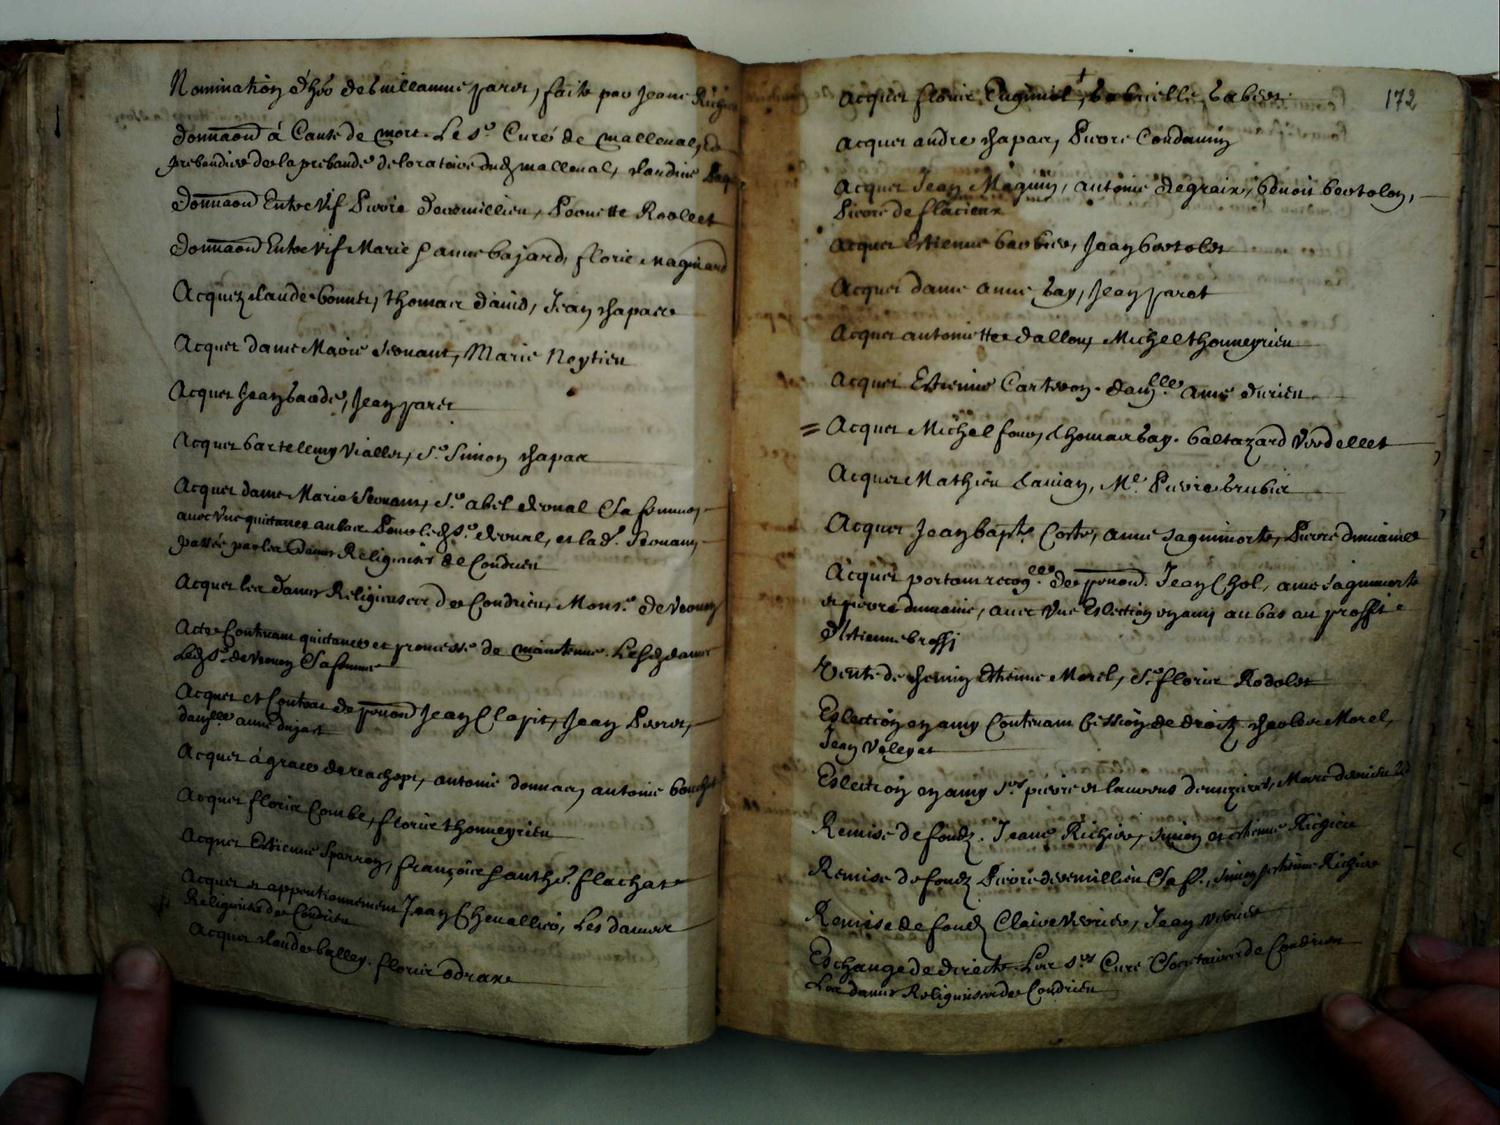 Nomination d'her de Guillaume paret, faite par Jeane
donnaon à Cause de mort. Le sr. Curé de mallenal,
prebandier de la prebande de loratoire dud mallenal, Claudine
donnaon Entre vif Pierre devermillieu, Pernette Roollet
donnaon Entre vif Marie & anne bajard, florie magniard
Acquez Claude bonnet, thomas david, Jean Chapare
Acquet dame Marie Seonant, Marie Neytieu
Acquet Jean baude, Jean paret
Acquet bartelemy Viallet, Sr. Simon Chapae
Acquet dame Marie Seonam, Sr. abel deonal & sa femme,
avec vne quitance au bas Pour led Sr. deonal, et lad. Seonam,
passée par les dames Religieuses de Condrieu
Acquet les dames Religieuses de Condrieu, Monsr. de
Acte Contenam quitance et promesse de maintenue. Lesd dames
Led Sr. de & sa femme
Acquet et Contrat de Jean Clapit, Jean
danlle anne dujast
Acquet à grace de reachept, antonie donnat, antonie bouchet
Acquet florie Combe, florie thonneyrieu
Acquet Estienne Sparron, françoise & anthe. flachat
Acquet et appentionnement Jean Chenallier, Les dames
Religieuses de Condrieu
Acquet Claude balley. florie odrane
172
Acquet florie Gabrielle babier
Acquet andre Chapae, Pierre Condamin
Acquet Jean Magnin, antonie degraix, benoit bertolon,
Pierre de flacieux
Acquet Estienne barbier, Jean bertolet
Acquet dame anne bay, Jean parot
Acquet antoniette dallon, Michel thonneyrieu
Acquet Estienne Carteron. danlle. anne durieu
= Acquet Michel four, thomas bay. baltazard Verdellet
Acquet Mathieu Me. Pierre brubie
Acquet Jean bapte. Coste, anne saguimorte, Pierre dumaine
Acquet portam recoglle. de Jean Chol, anne saguimorte
et pierre dumaine, avec Vne Eslection en amy au bas au proffit
d'Estienne broffi
Vente de chemin Etienne Morel, Sr. florie Rodolet
Eslection en amy Contenam Cession de droitz Morel,
Jean Valeyat
Eslection en amy Srs pierre et laurens denizieres, Marc
Remise de fondz. Jeane Richier, Simon et estienne Richier
Remise de fondz Pierre devermillieu & sa f., Simon, estienne Richier
Remise de fondz Claire Verrier, Jean Verrier
Eschange de directe. Les srs Curé & societaires de Condrieu
Les dames Religieuses de Condrieu